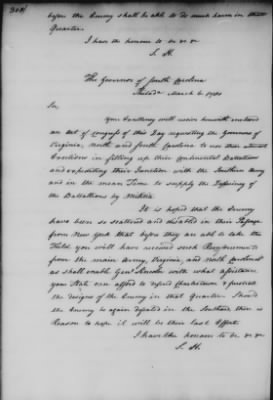 308
before the Enemy shall be able to do much harm in that
Quarter.
I have the honour to be &c &c
S. H.
The Governor of South Carolina
Philada March 6 1780
Sir,
Your Excellency will receive herewith inclosed
an Act of Congress of this Day requesting the Governors of
Virginia, North and South Carolina to use their utmost
Exertions in filling up their Continental Battalions
and expediting their Junction with the Southern Army
and in the mean Time to supply the Deficiency of
the Battalions by Militia.
It is hoped that the Enemy
have been so scattered and disabled in their Passage
from New York that before they are able to take the
Field you will have received such Reinforcements
from the main Army, Virginia, and North Carolina
as shall enable Genl Lincoln with what assistance
your State can afford to defend Charlestown & frustrate
the designs of the Enemy in that Quarter. Should
the Enemy be again defeated in the Southward there is
Reason to hope it will be their last Effort.
I have the honour to be &c &c
S. H.